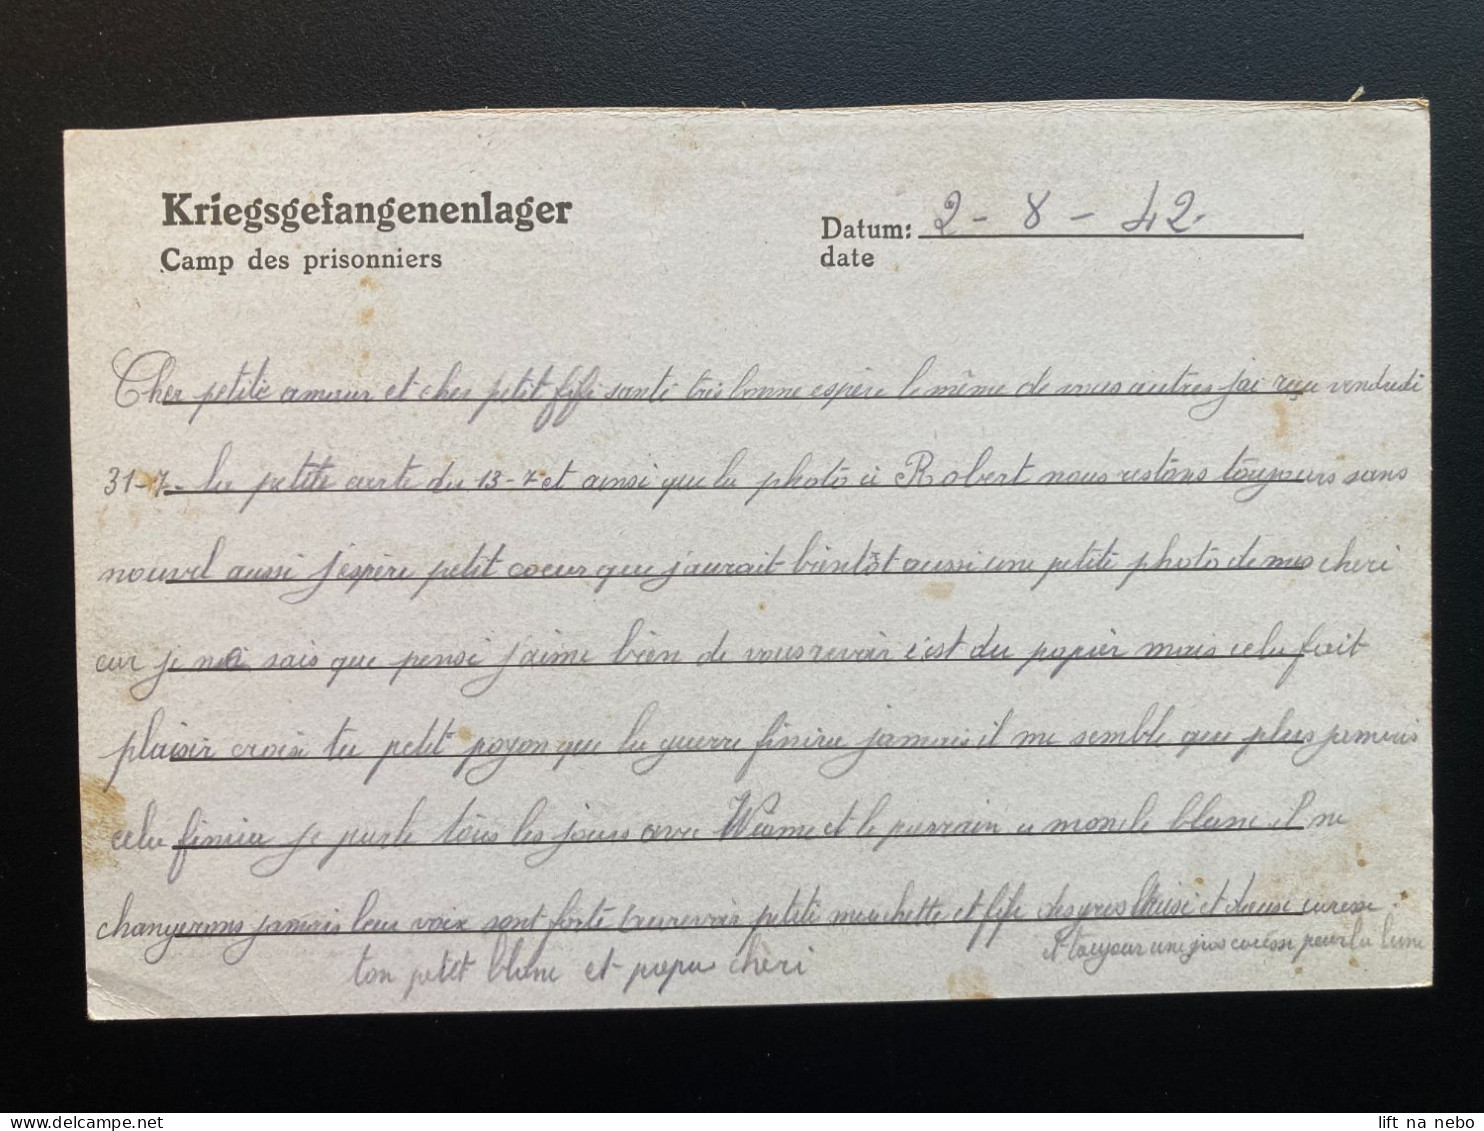 Kriegsgefangenenlager
Camp des prisonniers
Datum: 2 - 8 - 42.
date
Cher petite amour et cher petit fifi santé très bonne espère le même de vous autres j'ai reçu vendredi
31-7- la petite carte du 13-7 et ainsi que la photo à Robert nous restons toujours sans
nouvel aussi j'espère petit coeur que j'aurait bientôt aussi une petite photo de mes cheri
car je sais que pense j'aime bien de vous revoir c'est du papier mais cela fait
plaisir crois tu petit poyon que la guerre finira jamais il me semble que plus jamais
cela finira je parle tous les jours avec et le parrain a monele blanc il ne
changerons jamais leur voix sont forte aurevoir petite mouchette et fifi des gros et douse caresse
et toujour une gros caresse pour la lune
ton petit blanc et papa chèri
lift na nebo
www.delcampe.net